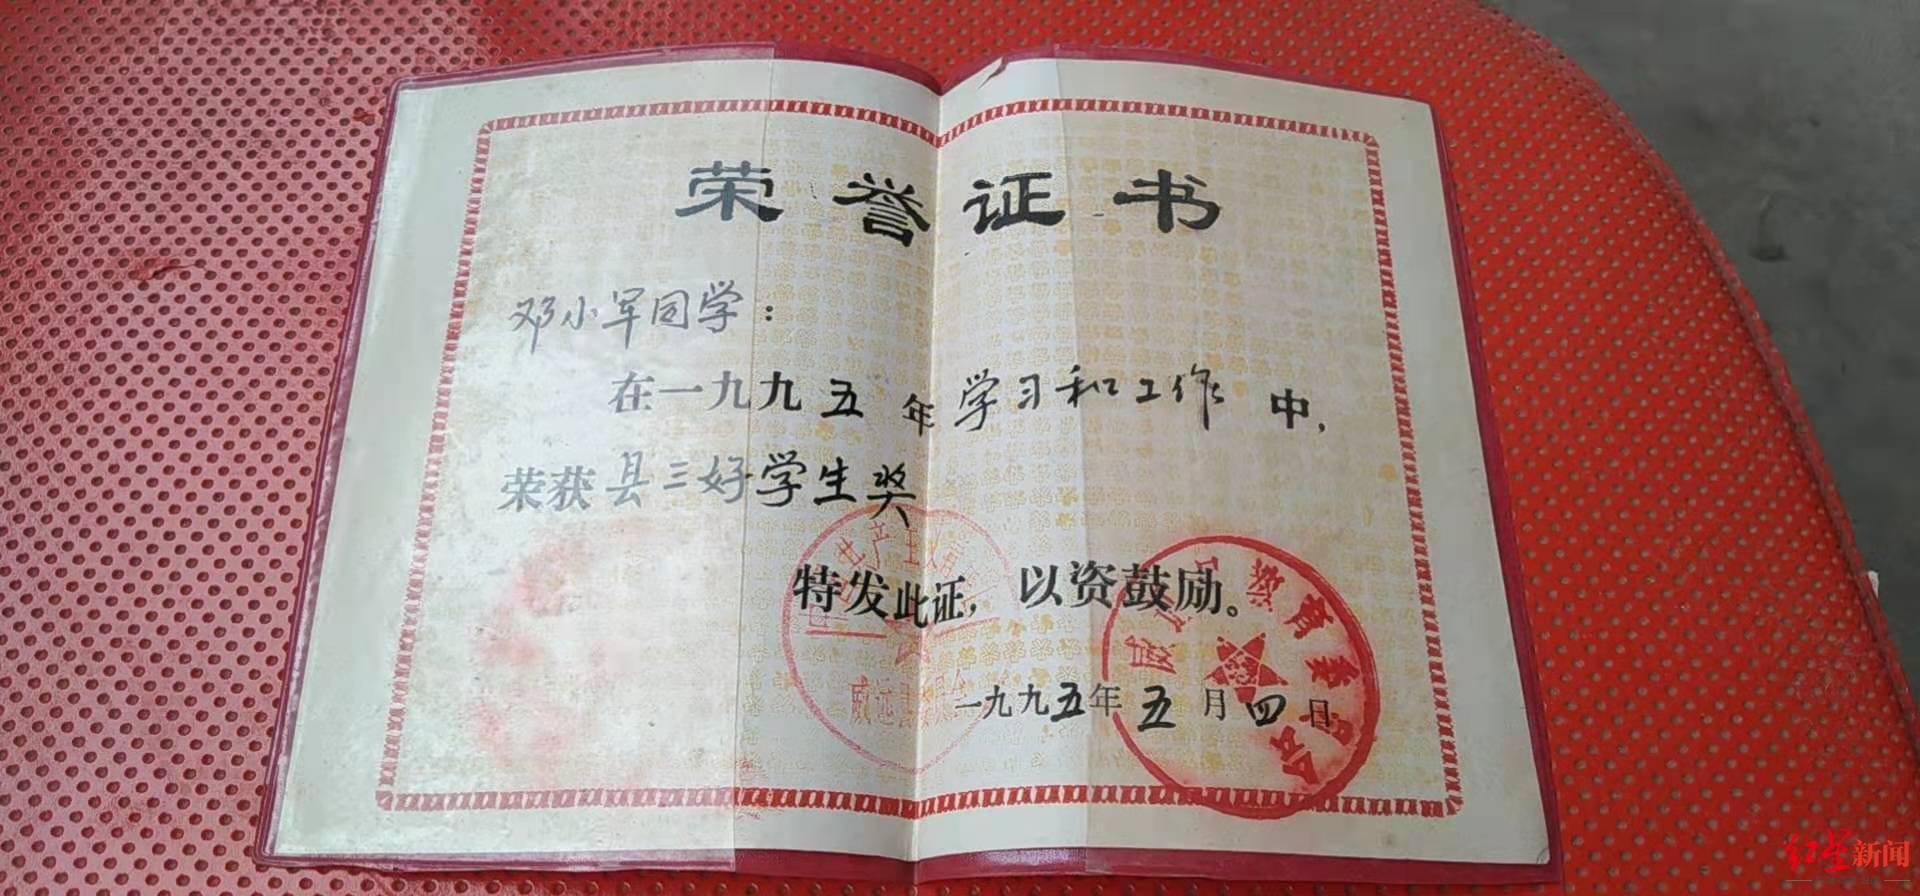 荣誉证书
邓小军同学：
在一九九五年学习和工作中，
荣获县三好学生奖
特发此证，以资鼓励。
一九九五年五月四日
共产主义
威远县
教育
红星新闻